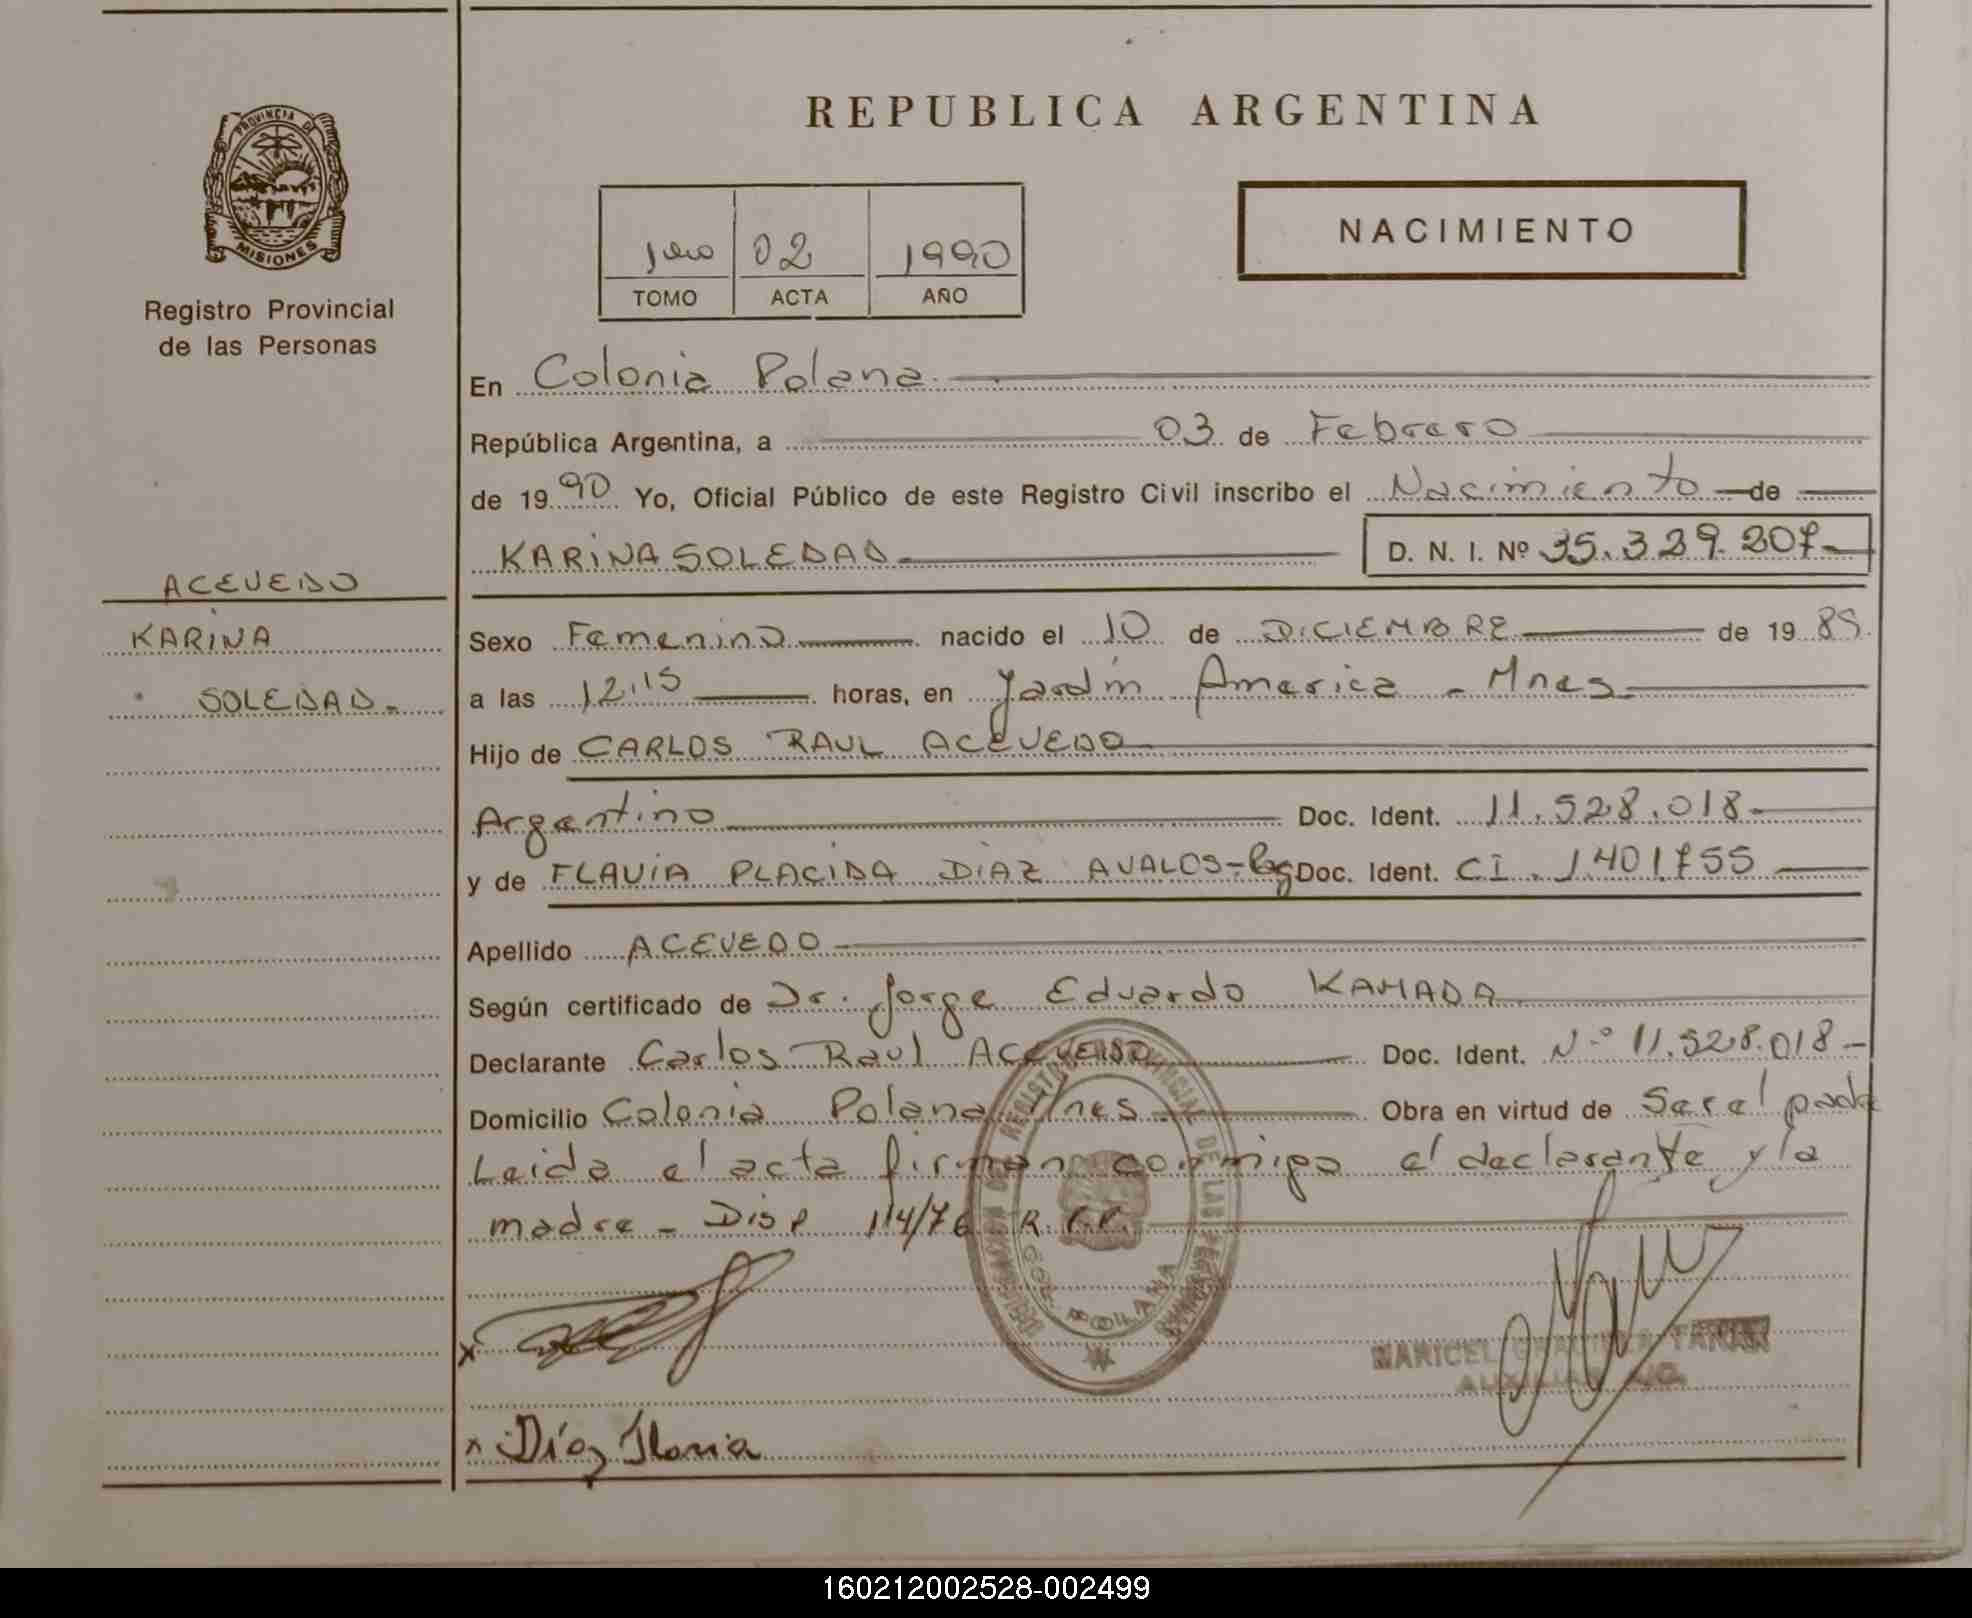 PROVINCIA DE
MISIONES
Registro Provincial
de las Personas
REPUBLICA ARGENTINA
NACIMIENTO
02 1990
TOMO ACTA AÑO
En Colonia Polana
República Argentina, a 03 de Febrero
de 1990 Yo, Oficial Público de este Registro Civil inscribo el Nacimiento de
KARINA SOLEDAD D. N. I. Nº 35.329.207
ACEVEDO
KARINA
SOLEDAD
Sexo Femenino nacido el 10 de DICIEMBRE de 1989
a las 12.15 horas, en Jardín America - Mnes
Hijo de CARLOS RAUL ACEVEDO
Argentino Doc. Ident. 11.528.018
y de FLAVIA PLACIDA DIAZ AVALOS Doc. Ident. CI. 1401755
Apellido ACEVEDO
Según certificado de Dr. Jorge Eduardo KAMADA
Declarante Carlos Raul ACEVEDO Doc. Ident. Nº 11.528.018
Domicilio Colonia Polana Mnes Obra en virtud de Ser el padre
Leida el acta firman conmigo el declarante y la
madre - Disp 114/76 R.C.C.
REGISTRO PROVINCIAL DE LAS PERSONAS
COL. POLANA
MARICEL GRACIELA
x
x Díaz Flavia
160212002528-002499